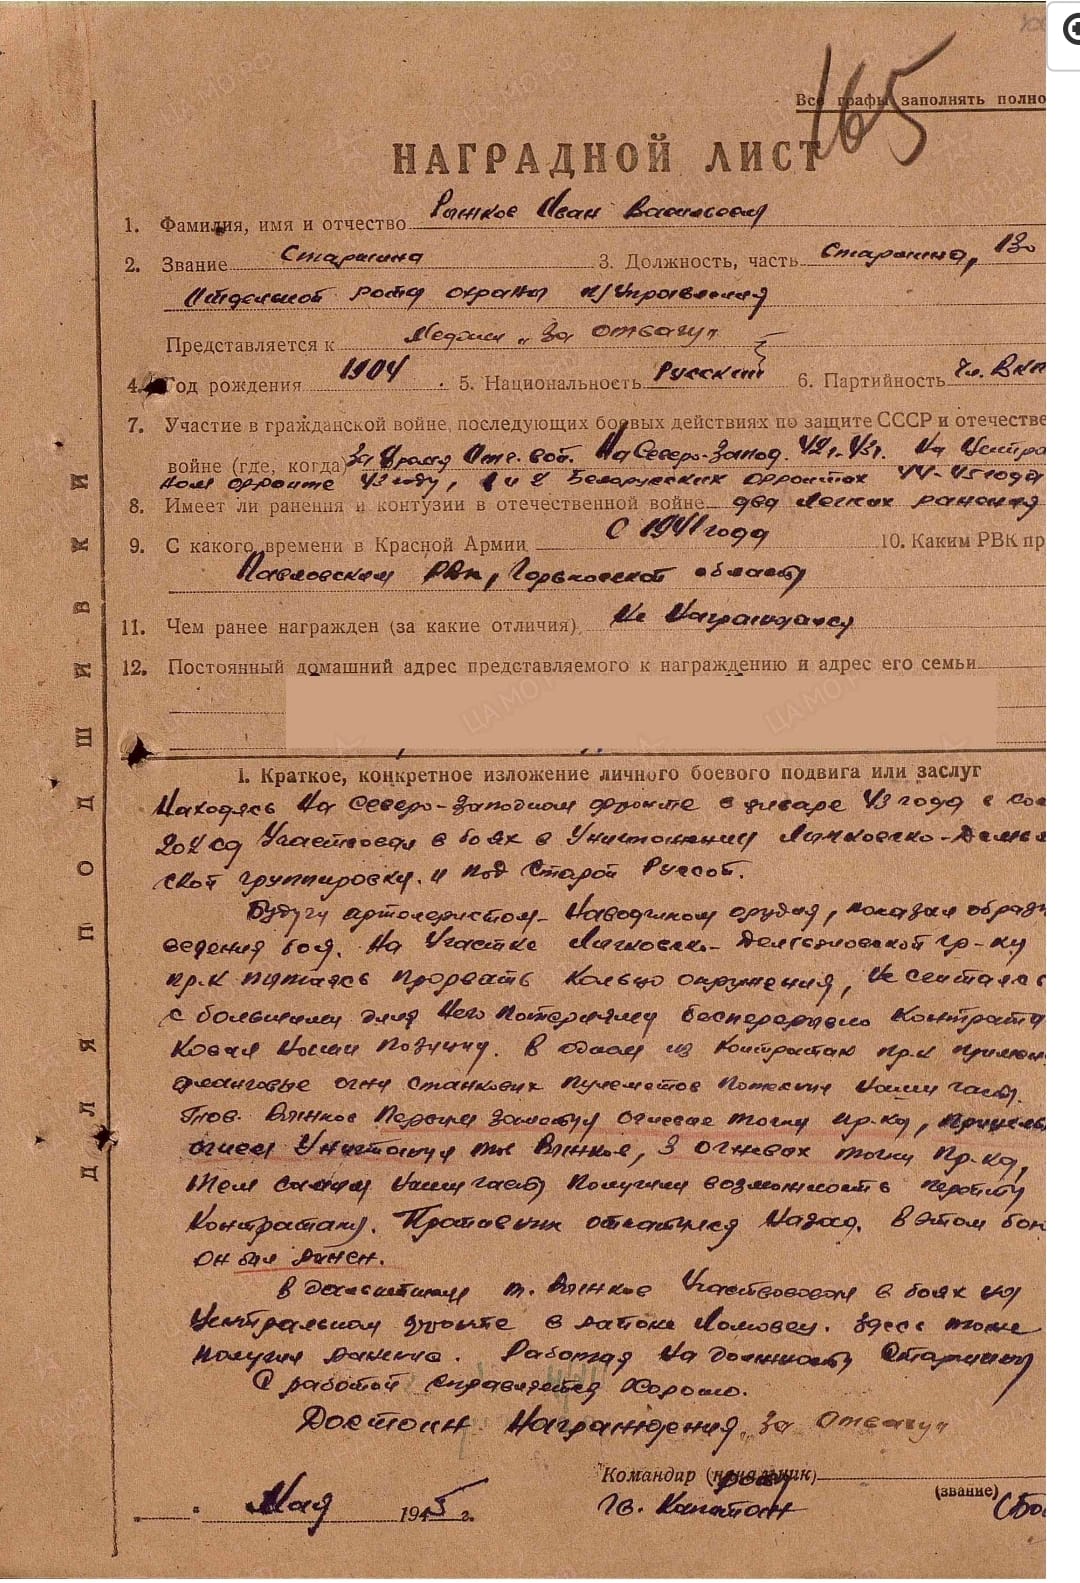 165
Все графы заполнять полно
НАГРАДНОЙ ЛИСТ
1. Фамилия, имя и отчество Рыжков Иван Васильевич
2. Звание Старшина 3. Должность, часть Старшина, 130
Отдельной роты охраны п/Управления
Представляется к Медали „За отвагу"
4. Год рождения 1904. 5. Национальность Русский 6. Партийность Чл. ВКП
7. Участие в гражданской войне, последующих боевых действиях по защите СССР и отечестве
войне (где, когда) За время Оте. вой. На Северо-Запад. 42г.-43г. На Центра
ном фронте 43 году, 1 и 2 Белорусских фронтах 44-45 года
8. Имеет ли ранения и контузии в отечественной войне два легких ранения
9. С какого времени в Красной Армии С 1941 года 10. Каким РВК пр
Павловским РВК, Горьковской области
11. Чем ранее награжден (за какие отличия) Не Награждался
12. Постоянный домашний адрес представляемого к награждению и адрес его семьи
ДЛЯ ПОДШИВКИ
I. Краткое, конкретное изложение личного боевого подвига или заслуг
Находясь На Северо-Западном фронте в январе 43 года в сос
202 сд Участвовал в боях в Уничтожении Лычковско-Демья
ской группировки. и под Старой Руссой.
Будучи артилеристом- Наводчиком орудия, показал образц
ведения боя. На Участке Лычковско- гр-ки
пр-к пытаясь прорвать кольцо окружения, Не считаясь
с большими для Него потерями беспрерывно Контрата
ковал Наши позиции. В одном из Контратак пр-к примен
фланговые огни станковых пулеметов Наши части.
Тов. Рыжков Первым заметил огневые точки пр-ка,
огнем Уничтожил тов Рыжков, 3 огневых точки пр-ка,
тем самым Наши части получили возможность перейти
Контратаку. Противник откатился Назад. В этом бою
он был ранен.
В дальнейшем т. Рыжков Участвовал в боях на
Центральном фронте в районе Ломовец. Здесь тоже
получил ранение. Работая На должности Старшины
С работой справляется Хорошо.
Достоин Награждения „За отвагу"
Командир (начальник) роты
(звание)
Гв. Капитан
Май 1945 г.